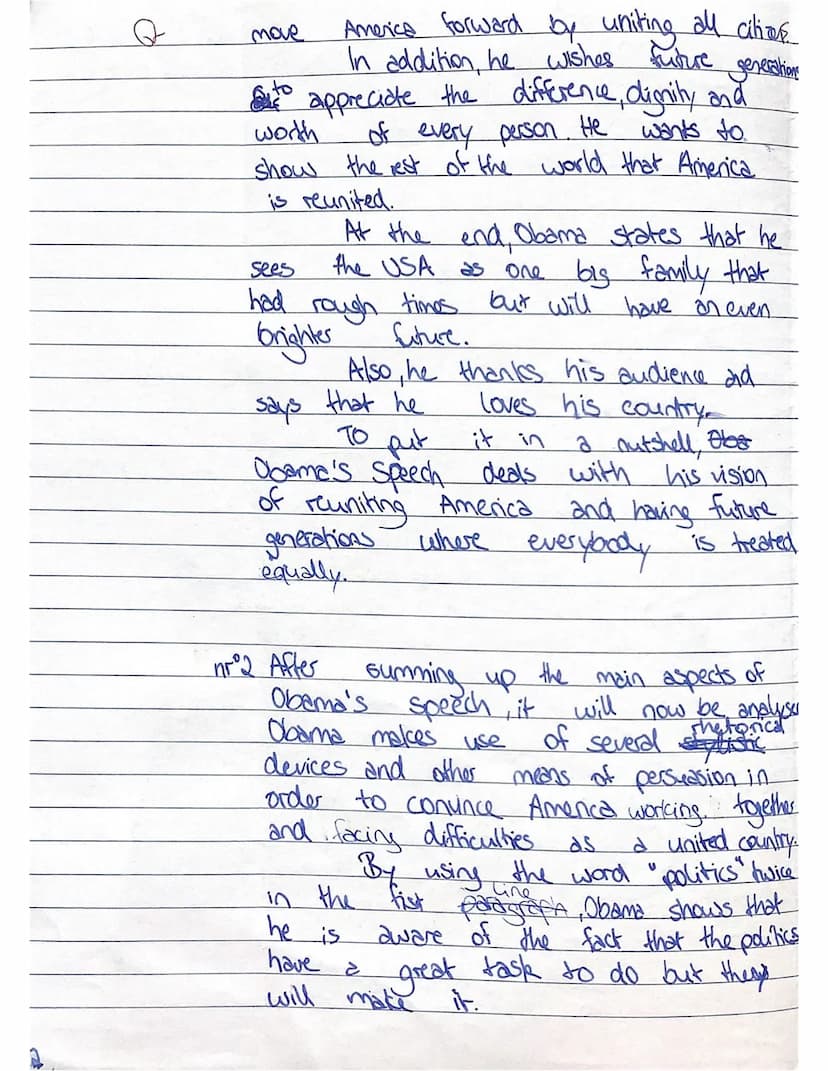 move America forward by uniting all citizens.
In addition, he wishes future generations
to appreciate the difference, dignity and
worth of every person. He wants to
show the rest of the world that America
is reunited.
At the end, Obama states that he
sees the USA as one big family that
had rough times but will have an even
brighter future.
Also, he thanks his audience ad
says that he loves his country.
To put it in a nutshell, Oba
Obama's speech deals with his vision
of reuniting America and having future
generations where everybody is treated
equally.
nr°2 After summing up the main aspects of
Obama's speech, it will now be analysed
Obama makes use of several rhetorical stylistic
devices and other means of persuasion in
order to convince America working together
and facing difficulties as a united country.
By using the word "politics" twice
in the fist line paragraph, Obama shows that
he is aware of the fact that the politics
have a great task to do but they
will make it.
2